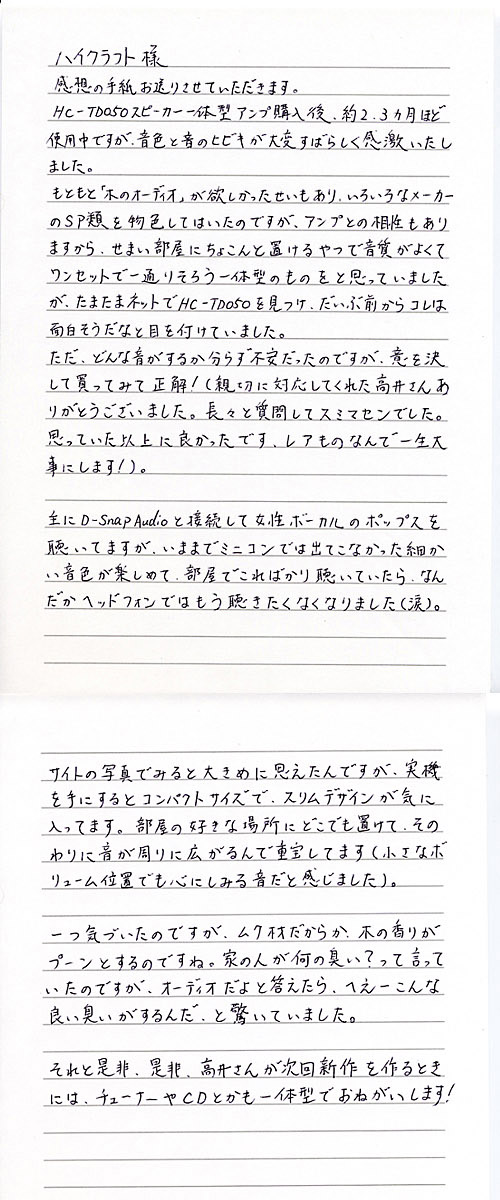 ハイクラフト 様
感想の手紙お送りさせていただきます。
HC-TD050スピーカー一体型アンプ購入後、約2.3ヵ月ほど
使用中ですが、音色と音のヒビキが大変すばらしく感激いたし
ました。
もともと「木のオーディオ」が欲しかったせいもあり、いろいろなメーカー
のSP類を物色してはいたのですが、アンプとの相性もあり
ますから、せまい部屋にちょこんと置けるやつで音質がよくて
ワンセットで一通りそろう一体型のものをと思っていました
が、たまたまネットでHC-TD050を見つけ、だいぶ前からコレは
面白そうだなと目を付けていました。
ただ、どんな音がするか分らず不安だったのですが、意を決
して買ってみて正解!(親切に対応してくれた高井さんあ
りがとうございました。長々と質問してスミマセンでした。
思っていた以上に良かったです、レアものなんで一生大
事にします!)。
主にD-Snap Audioと接続して女性ボーカルのポップスを
聴いてますが、いままでミニコンでは出てこなかった細か
い音色が楽しめて、部屋でこればかり聴いていたら、なん
だかヘッドフォンではもう聴きたくなくなりました(涙)。
サイトの写真でみると大きめに思えたんですが、実機
を手にするとコンパクトサイズで、スリムデザインが気に
入ってます。部屋の好きな場所にどこでも置けて、その
わりに音が周りに広がるんで重宝してます(小さなボ
リューム位置でも心にしみる音だと感じました)。
一つ気づいたのですが、ムク材だからか、木の香りが
プーンとするのですね。家の人が何の臭い?って言って
いたのですが、オーディオだよと答えたら、へえーこんな
良い臭いがするんだ、と驚いていました。
それと是非、是非、高井さんが次回新作を作るとき
には、チューナーやCDとかも一体型でおねがいします!